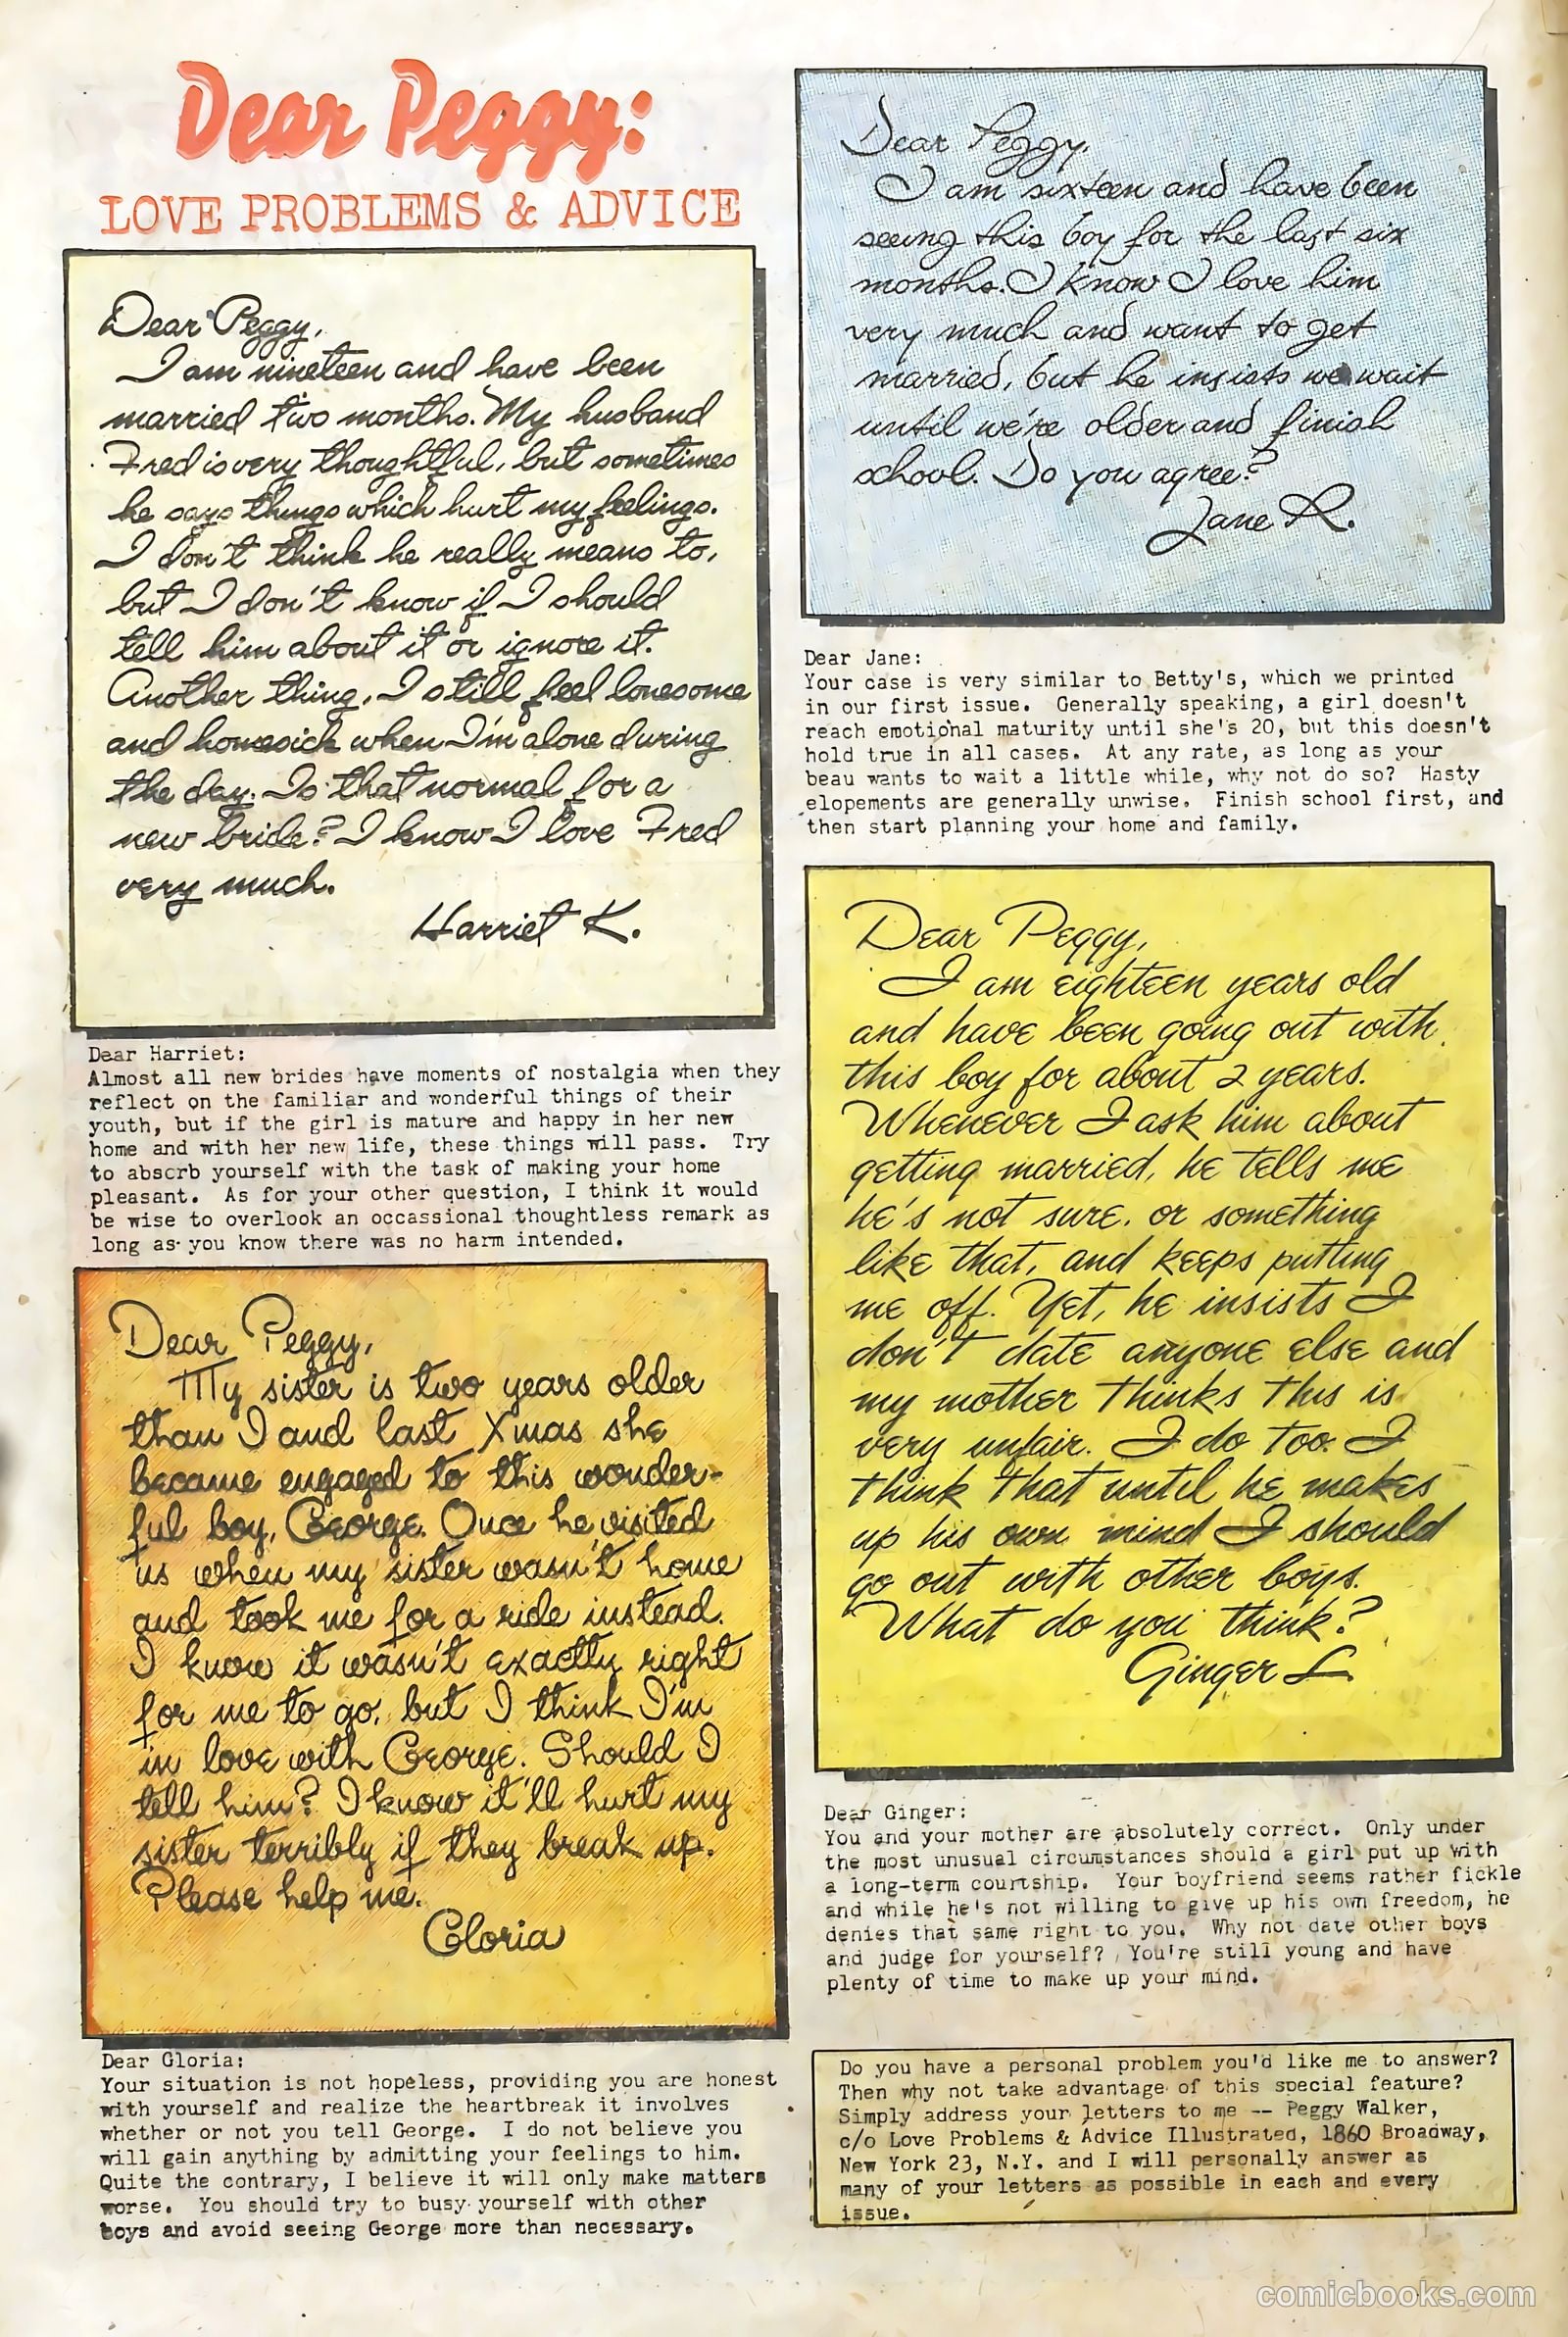 Dear Peggy:
LOVE PROBLEMS & ADVICE
Dear Peggy,
I am nineteen and have been
married two months. My husband
Fred is very thoughtful, but sometimes
he says things which hurt my feelings.
I don't think he really means to,
but I don't know if I should
tell him about it or ignore it.
Another thing, I still feel lonesome
and homesick when I'm alone during
the day. Is that normal for a
new bride? I know I love Fred
very much.
Harriet K.
Dear Harriet:
Almost all new brides have moments of nostalgia when they
reflect on the familiar and wonderful things of their
youth, but if the girl is mature and happy in her new
home and with her new life, these things will pass. Try
to absorb yourself with the task of making your home
pleasant. As for your other question, I think it would
be wise to overlook an occassional thoughtless remark as
long as you know there was no harm intended.
Dear Peggy,
My sister is two years older
than I and last Xmas she
became engaged to this wonder-
ful boy, George. Once he visited
us when my sister wasn't home
and took me for a ride instead.
I know it wasn't exactly right
for me to go, but I think I'm
in love with George. Should I
tell him? I know it'll hurt my
sister terribly if they break up.
Please help me.
Gloria
Dear Gloria:
Your situation is not hopeless, providing you are honest
with yourself and realize the heartbreak it involves
whether or not you tell George. I do not believe you
will gain anything by admitting your feelings to him.
Quite the contrary, I believe it will only make matters
worse. You should try to busy yourself with other
boys and avoid seeing George more than necessary.
Dear Peggy,
I am sixteen and have been
seeing this boy for the last six
months. I know I love him
very much and want to get
married, but he insists we wait
until we're older and finish
school. Do you agree?
Jane R.
Dear Jane:
Your case is very similar to Betty's, which we printed
in our first issue. Generally speaking, a girl doesn't
reach emotional maturity until she's 20, but this doesn't
hold true in all cases. At any rate, as long as your
beau wants to wait a little while, why not do so? Hasty
elopements are generally unwise. Finish school first, and
then start planning your home and family.
Dear Peggy,
I am eighteen years old
and have been going out with
this boy for about 2 years.
Whenever I ask him about
getting married, he tells me
he's not sure, or something
like that, and keeps putting
me off. Yet, he insists I
don't date anyone else and
my mother thinks this is
very unfair. I do too. I
think that until he makes
up his own mind I should
go out with other boys.
What do you think?
Ginger L.
Dear Ginger:
You and your mother are absolutely correct. Only under
the most unusual circumstances should a girl put up with
a long-term courtship. Your boyfriend seems rather fickle
and while he's not willing to give up his own freedom, he
denies that same right to you. Why not date other boys
and judge for yourself? You're still young and have
plenty of time to make up your mind.
Do you have a personal problem you'd like me to answer?
Then why not take advantage of this special feature?
Simply address your letters to me -- Peggy Walker,
c/o Love Problems & Advice Illustrated, 1860 Broadway,
New York 23, N.Y. and I will personally answer as
many of your letters as possible in each and every
issue.
comicbooks.com